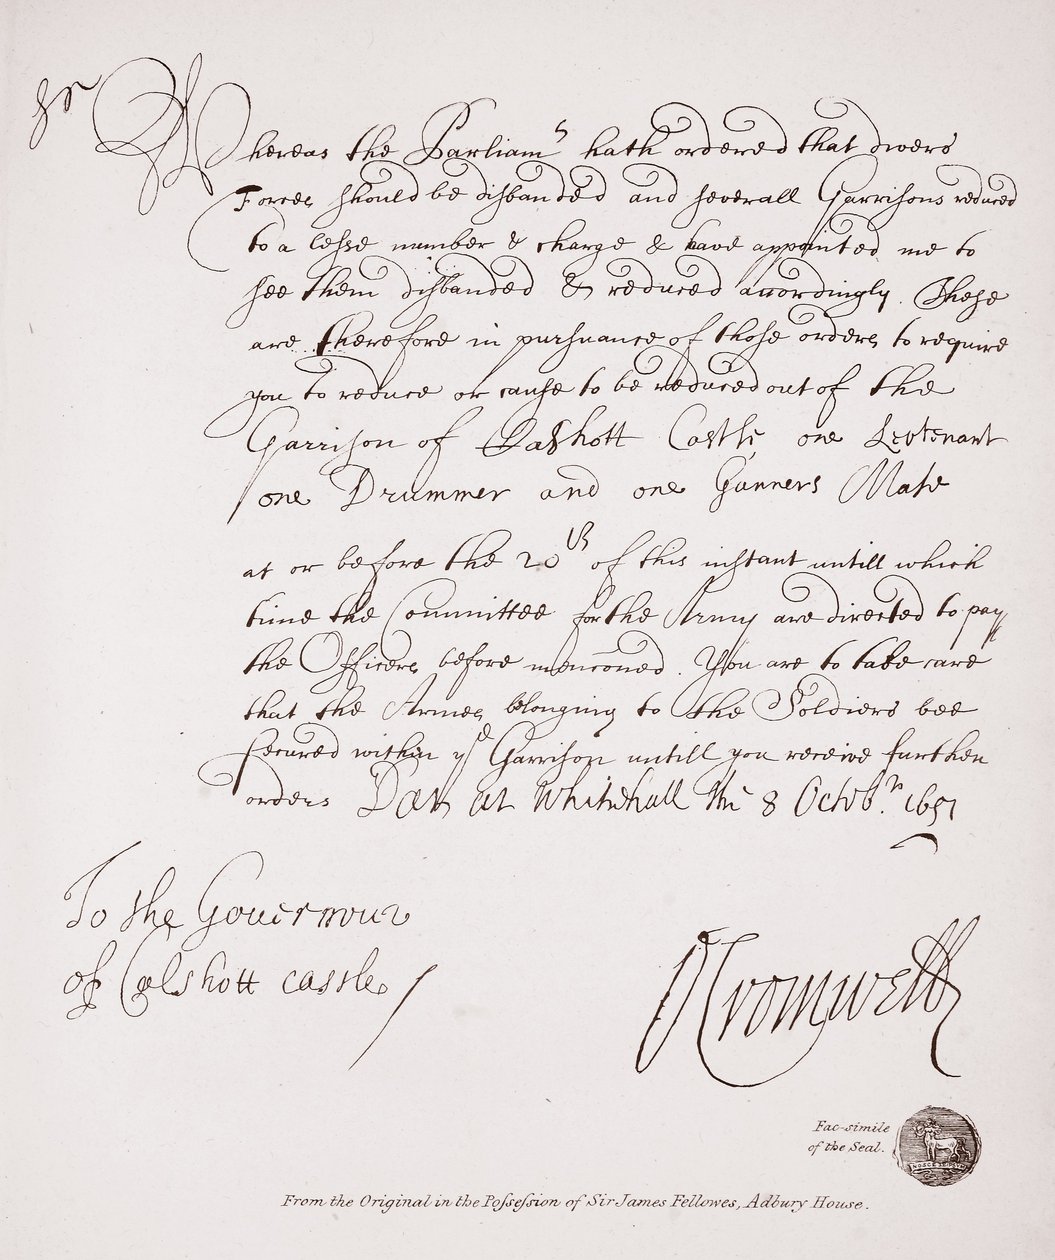 Sr
Whereas the Parliamt hath ordered that divers
Forces should be disbanded and severall Garrisons reduced
to a lesse number & charge & have appointed me to
see them disbanded & reduced accordingly. These
are therefore in pursuance of those orders to require
you to reduce or cause to be reduced out of the
Garrison of Calshott Castle one Leivtenant
one Drummer and one Gunners Mate
at or before the 20th of this instant untill which
time the Committee for the Army are directed to pay
the Officers before mencōned. You are to take care
that the Armes belonging to the Soldiers bee
secured within ye Garrison untill you receive further
orders Dat at Whitehall the 8 Octobr. 1651
To the Governour
of Calshott castle
O Cromwell
Fac-simile
of the Seal.
From the Original in the Possession of Sir James Fellowes, Adbury House.